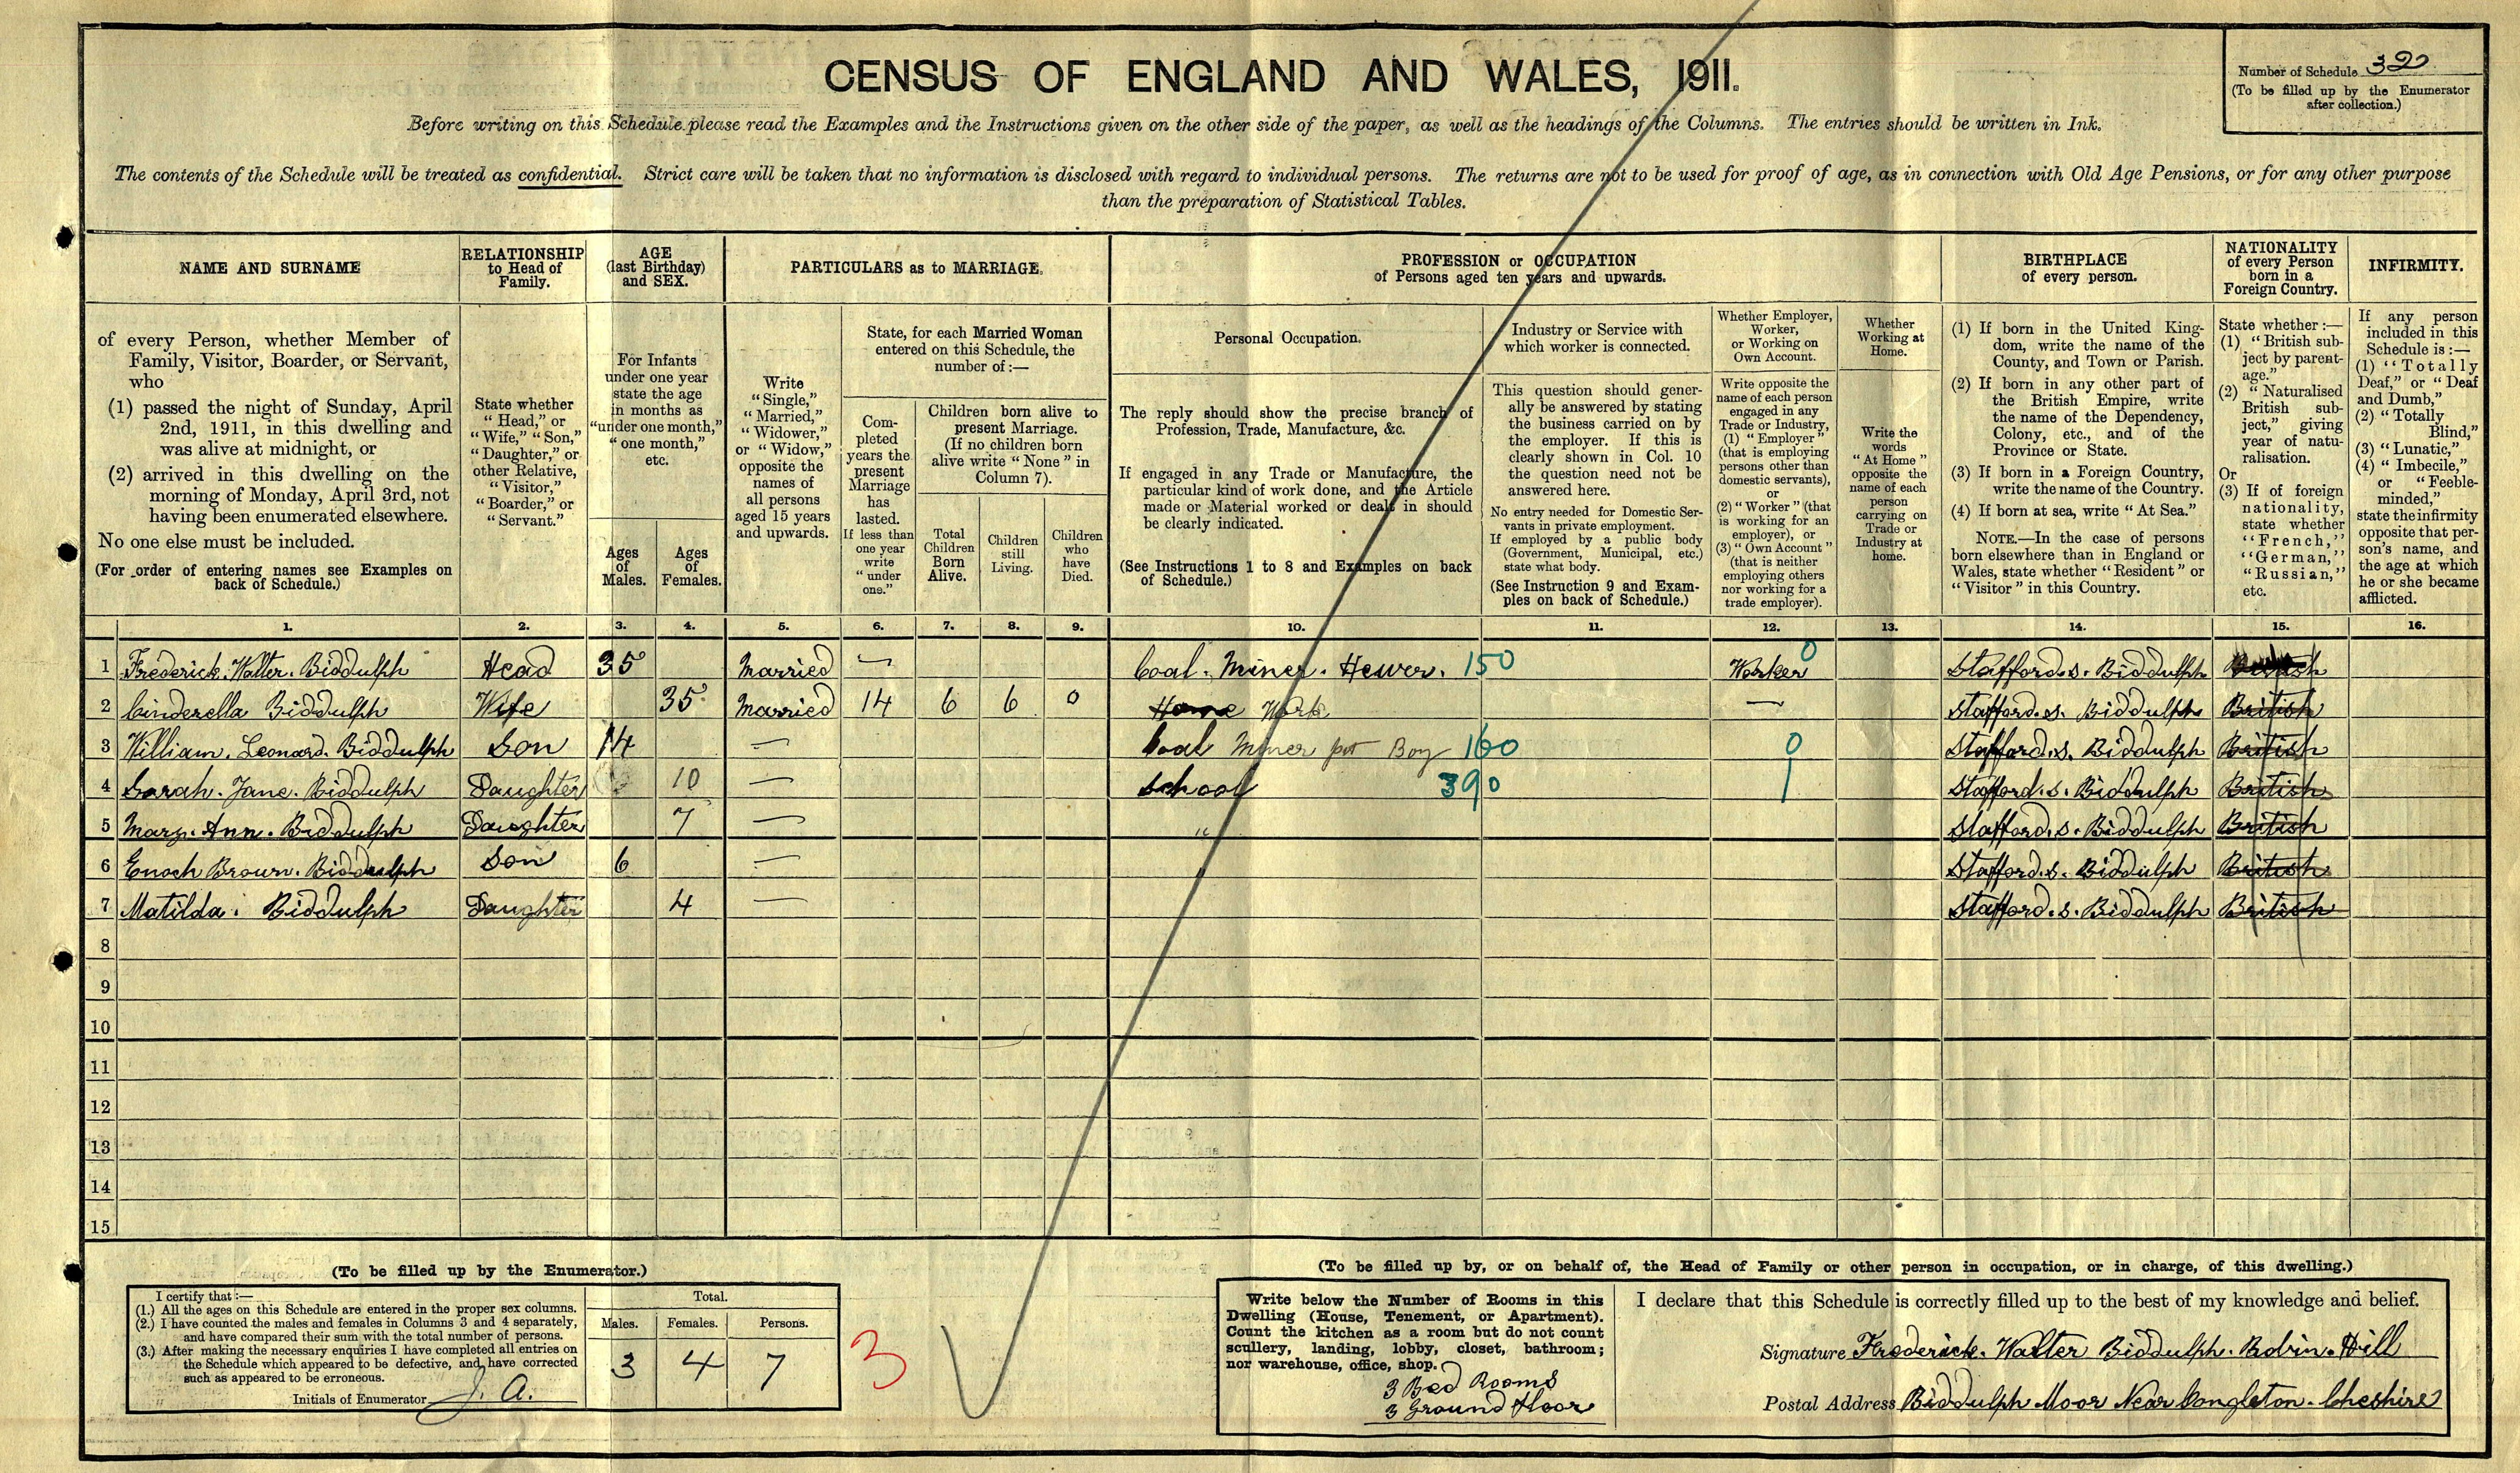 CENSUS OF ENGLAND AND WALES, 1911.
Number of Schedule 320
(To be filled up by the Enumerator
after collection.)
Before writing on this Schedule please read the Examples and the Instructions given on the other side of the paper, as well as the headings of the Columns. The entries should be written in Ink.
The contents of the Schedule will be treated as confidential. Strict care will be taken that no information is disclosed with regard to individual persons. The returns are not to be used for proof of age, as in connection with Old Age Pensions, or for any other purpose
than the preparation of Statistical Tables.
NAME AND SURNAME
of every Person, whether Member of
Family, Visitor, Boarder, or Servant,
who
(1) passed the night of Sunday, April
2nd, 1911, in this dwelling and
was alive at midnight, or
(2) arrived in this dwelling on the
morning of Monday, April 3rd, not
having been enumerated elsewhere.
No one else must be included.
(For order of entering names see Examples on
back of Schedule.)
RELATIONSHIP
to Head of
Family.
State whether
"Head," or
"Wife," "Son,"
"Daughter," or
other Relative,
"Visitor,"
"Boarder," or
"Servant."
AGE
(last Birthday)
and SEX.
For Infants
under one year
state the age
in months as
"under one month,"
"one month,"
etc.
Ages
of
Males.
Ages
of
Females.
PARTICULARS as to MARRIAGE.
Write
"Single,"
"Married,"
"Widower,"
or "Widow,"
opposite the
names of
all persons
aged 15 years
and upwards.
State, for each Married Woman
entered on this Schedule, the
number of :—
Com-
pleted
years the
present
Marriage
has
lasted.
If less than
one year
write
"under
one."
Children born alive to
present Marriage.
(If no children born
alive write "None" in
Column 7).
Total
Children
Born
Alive.
Children
still
Living.
Children
who
have
Died.
PROFESSION or OCCUPATION
of Persons aged ten years and upwards.
Personal Occupation.
The reply should show the precise branch of
Profession, Trade, Manufacture, &c.
If engaged in any Trade or Manufacture, the
particular kind of work done, and the Article
made or Material worked or dealt in should
be clearly indicated.
(See Instructions 1 to 8 and Examples on back
of Schedule.)
Industry or Service with
which worker is connected.
This question should gener-
ally be answered by stating
the business carried on by
the employer. If this is
clearly shown in Col. 10
the question need not be
answered here.
No entry needed for Domestic Ser-
vants in private employment.
If employed by a public body
(Government, Municipal, etc.)
state what body.
(See Instruction 9 and Exam-
ples on back of Schedule.)
Whether Employer,
Worker,
or Working on
Own Account.
Write opposite the
name of each person
engaged in any
Trade or Industry,
(1) "Employer"
(that is employing
persons other than
domestic servants),
or
(2) "Worker" (that
is working for an
employer), or
(3) "Own Account"
(that is neither
employing others
nor working for a
trade employer).
Whether
Working at
Home.
Write the
words
"At Home"
opposite the
name of each
person
carrying on
Trade or
Industry at
home.
BIRTHPLACE
of every person.
(1) If born in the United King-
dom, write the name of the
County, and Town or Parish.
(2) If born in any other part of
the British Empire, write
the name of the Dependency,
Colony, etc., and of the
Province or State.
(3) If born in a Foreign Country,
write the name of the Country.
(4) If born at sea, write "At Sea."
NOTE.—In the case of persons
born elsewhere than in England or
Wales, state whether "Resident" or
"Visitor" in this Country.
NATIONALITY
of every Person
born in a
Foreign Country.
State whether :—
(1) "British sub-
ject by parent-
age."
(2) "Naturalised
British sub-
ject," giving
year of natu-
ralisation.
Or
(3) If of foreign
nationality,
state whether
"French,"
"German,"
"Russian,"
etc.
INFIRMITY.
If any person
included in this
Schedule is :—
(1) "Totally
Deaf," or "Deaf
and Dumb,"
(2) "Totally
Blind,"
(3) "Lunatic,"
(4) "Imbecile,"
or "Feeble-
minded,"
state the infirmity
opposite that per-
son's name, and
the age at which
he or she became
afflicted.
1. 2. 3. 4. 5. 6. 7. 8. 9. 10. 11. 12. 13. 14. 15. 16.
1 Frederick. Walter. Biddulph Head 35 Married — Coal. Miner. Hewer. 150 Worker 0 Stafford.s. Biddulph British
2 Cinderella Biddulph Wife 35 Married 14 6 6 0 Home Work — Stafford.s. Biddulph British
3 William. Leonard. Biddulph Son 14 — Coal Miner pit Boy 160 0 Stafford.s. Biddulph British
4 Sarah. Jane. Biddulph Daughter 10 — School 390 1 Stafford.s. Biddulph British
5 Mary. Ann. Biddulph Daughter 7 — " Stafford.s. Biddulph British
6 Enoch Brown. Biddulph Son 6 — " Stafford.s. Biddulph British
7 Matilda. Biddulph Daughter 4 — Stafford.s. Biddulph British
8
9
10
11
12
13
14
15
(To be filled up by the Enumerator.)
I certify that :—
(1.) All the ages on this Schedule are entered in the proper sex columns.
(2.) I have counted the males and females in Columns 3 and 4 separately,
and have compared their sum with the total number of persons.
(3.) After making the necessary enquiries I have completed all entries on
the Schedule which appeared to be defective, and have corrected
such as appeared to be erroneous.
Initials of Enumerator J. A.
Total.
Males. Females. Persons.
3 4 7
3
(To be filled up by, or on behalf of, the Head of Family or other person in occupation, or in charge, of this dwelling.)
Write below the Number of Rooms in this
Dwelling (House, Tenement, or Apartment).
Count the kitchen as a room but do not count
scullery, landing, lobby, closet, bathroom;
nor warehouse, office, shop.
3 Bed Rooms
3 Ground Floor
I declare that this Schedule is correctly filled up to the best of my knowledge and belief.
Signature Frederick. Walter Biddulph. Robin. Hill
Postal Address Biddulph Moor Near Congleton. Cheshire